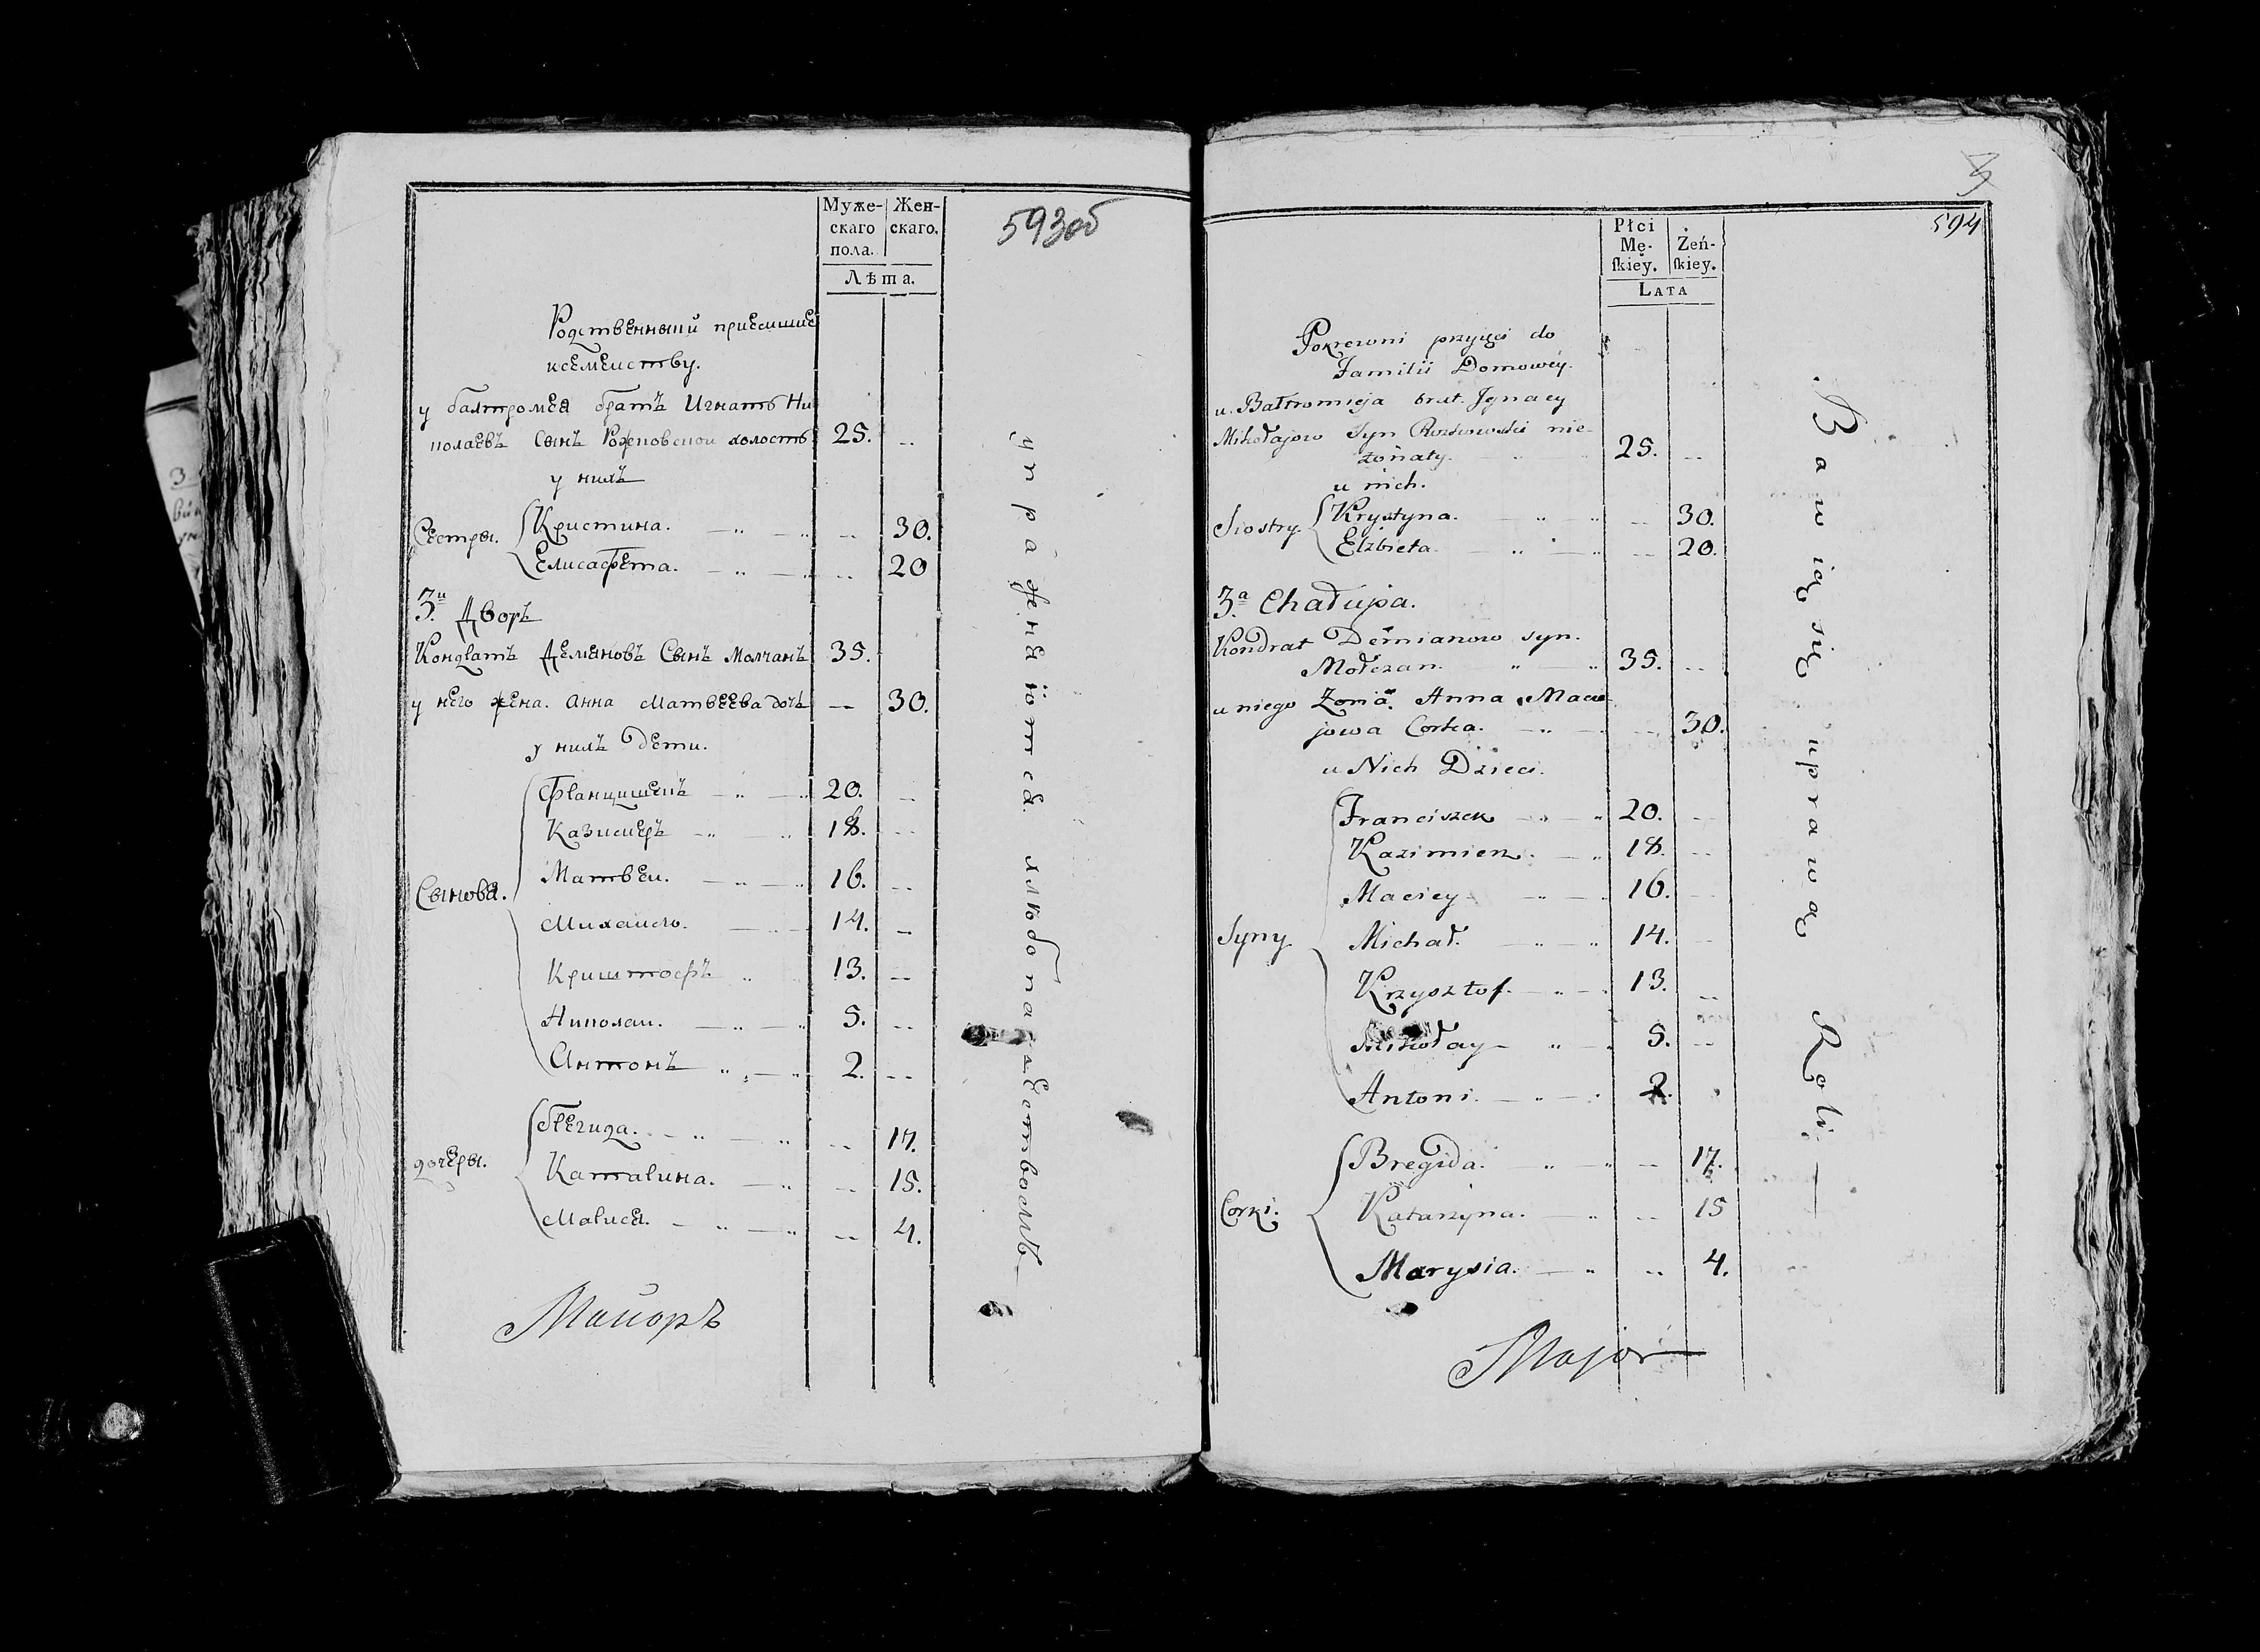 593об
Муже- Жен-
скаго скаго.
пола.
Лѣта.
Родственныи приемшие
ксемеиству.
у балтромея братъ Игнатъ Ни
колаевъ Сынъ Рожковской холостъ 25. --
у нихъ
Сестры. Кристина. -- 30.
Елисафета. -- 20
3й Дворъ
Кондратъ Демяновъ Сынъ Молчанъ 35.
у него жена. Анна Матвеева дочь -- 30.
у нихъ дети.
Францишекъ 20. --
Казимеръ 18. --
Сыновя. Матвеи. 16. --
Михаило. 14. --
Криштофъ 13. --
Николаи. 5. --
Антонъ 2. --
Брегида. -- 17.
дочеры. Катарина. -- 15.
Марися. -- 4.
Маиоръ
упражняются хлѣбопашествомъ
3
594
Płci
Mę- Żeń-
skiey. skiey.
LATA
Pokrewni przyięci do
Familii Domowéy.
u Bałtromieja brat Jgnacy
Mikołajow Syn Rożkowski nie-
żonaty. 25. --
u nich.
Siostry Krystyna. -- 30.
Elżbieta. -- 20.
3a Chałupa.
Kondrat Demianow syn.
Mołczan. 35. --
u niego Żona Anna Macie
jowa Corka. -- 30.
u Nich Dzieci.
Franciszek 20. --
Kazimierz. 18. --
Maciey 16. --
Syny Michał. 14. --
Krzysztof. 13. --
Mikołay 5. --
Antoni. 2.
Bregida. -- 17.
Corki. Katarzyna. -- 15
Marysia. -- 4.
Major
Bawią się uprawą Roli.